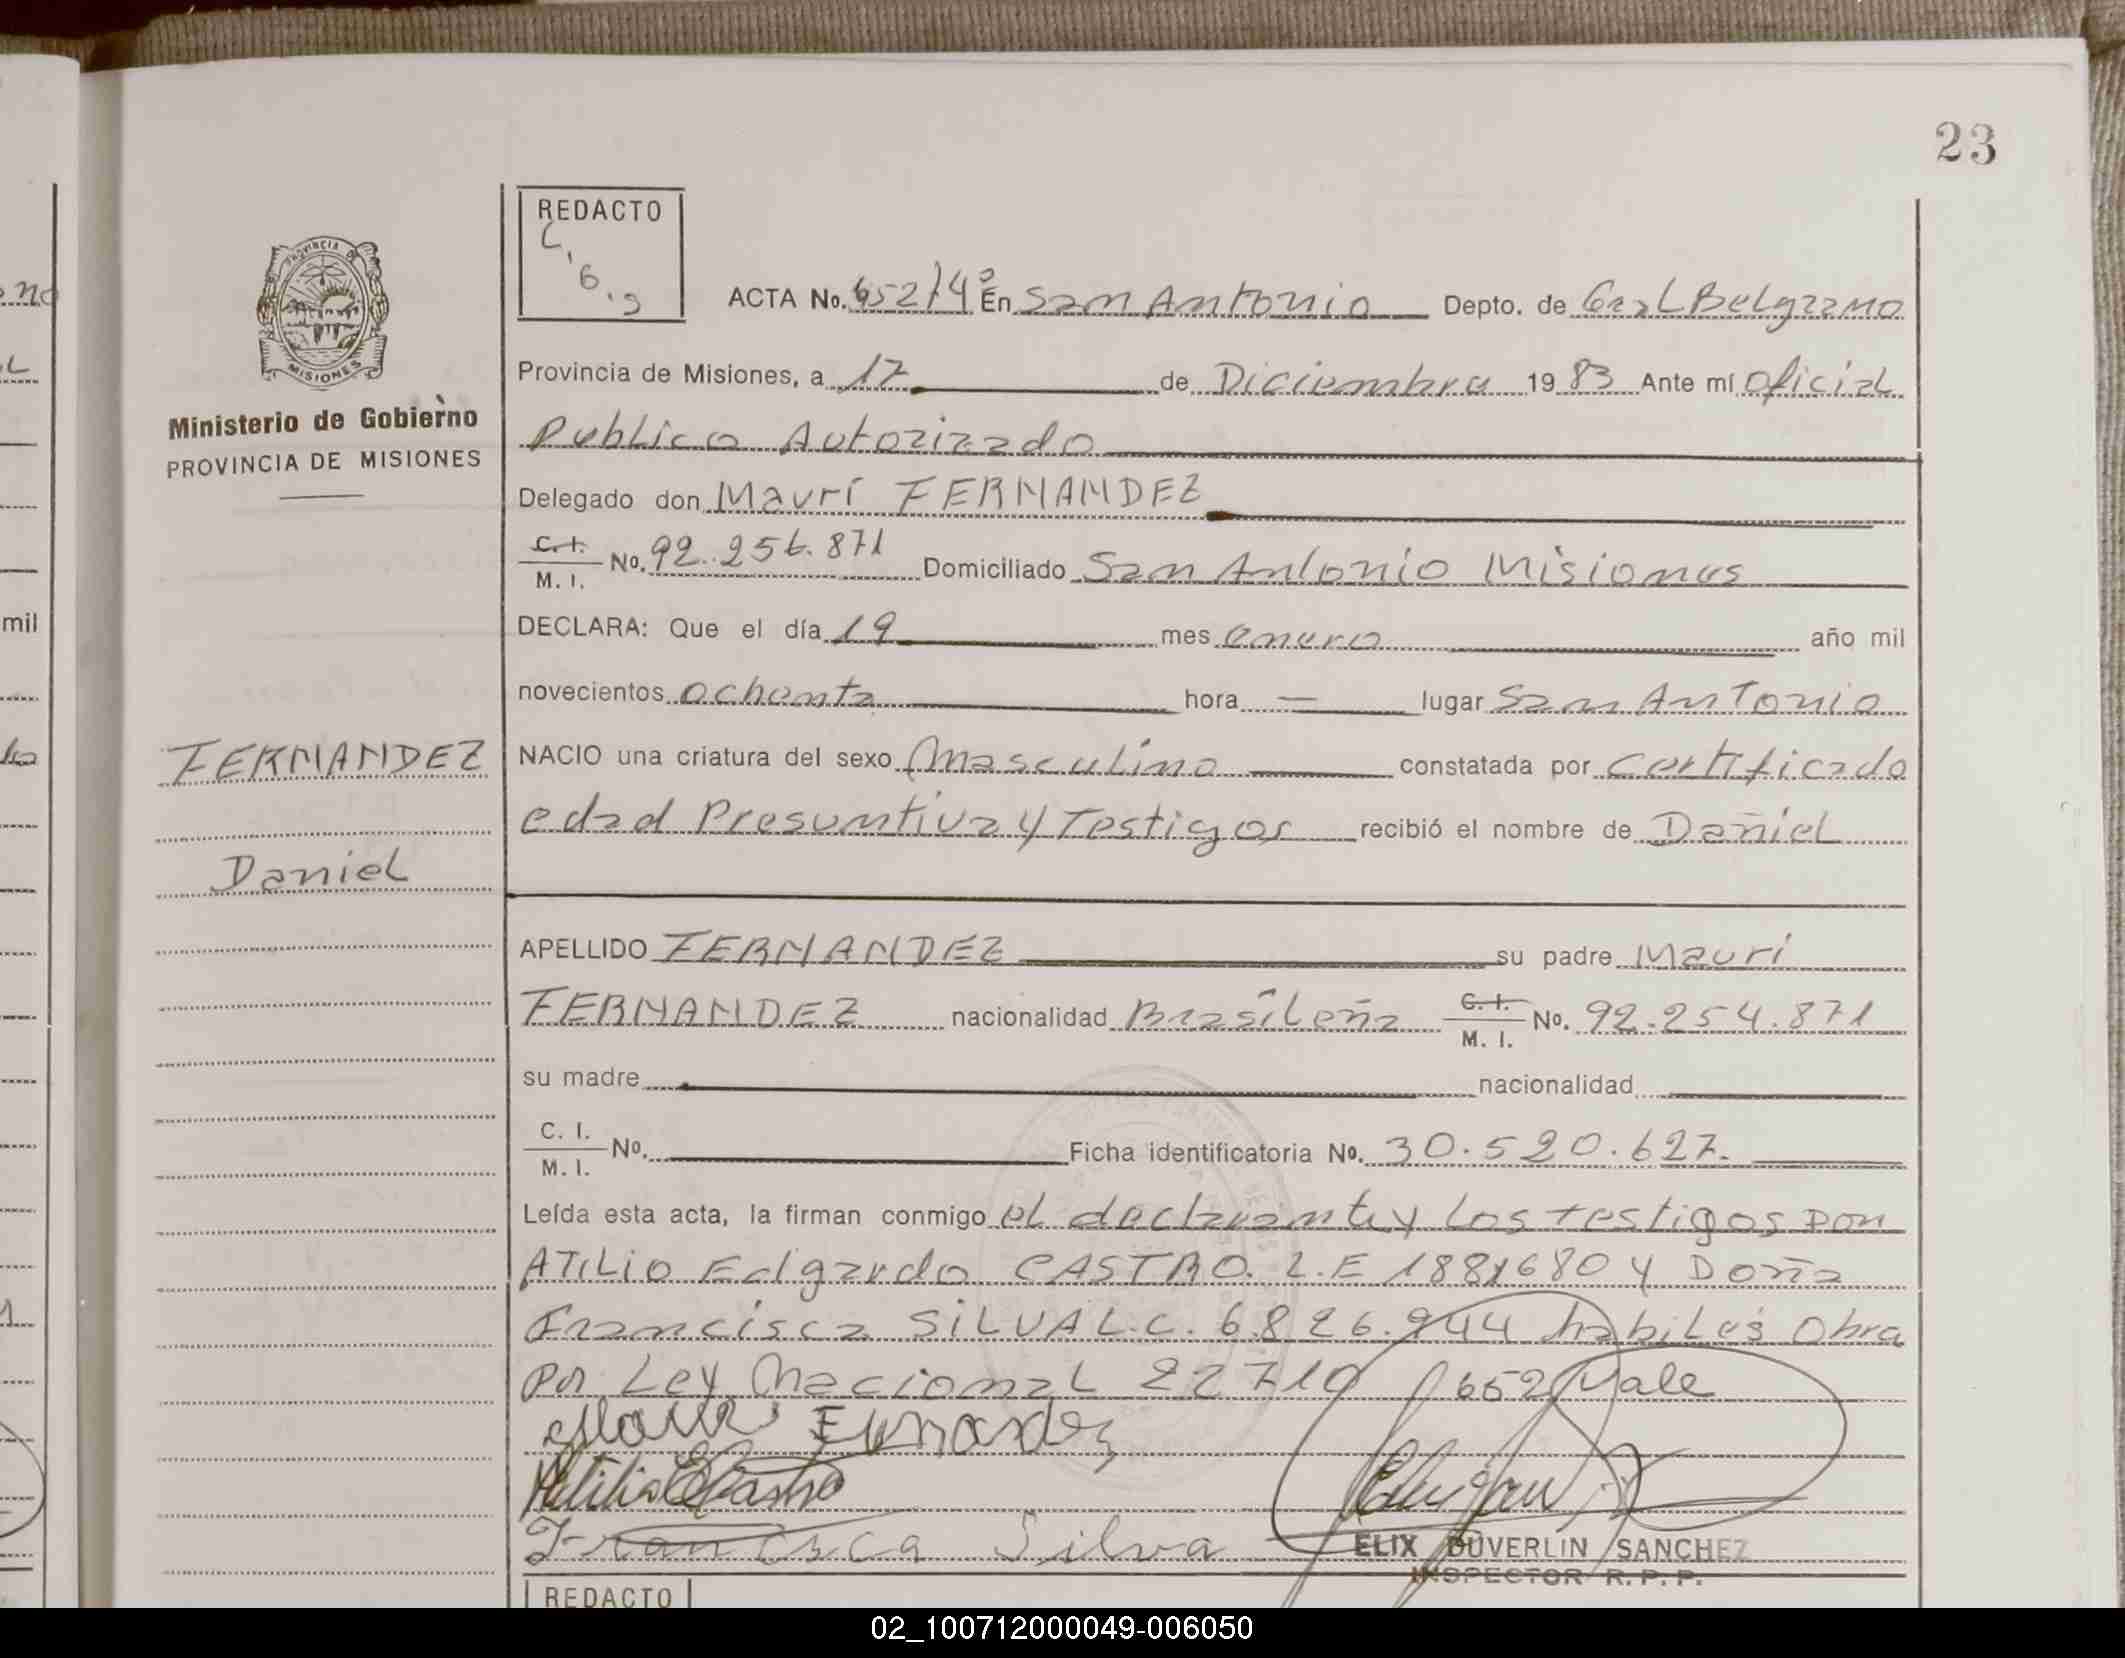 23
REDACTO
C.
6.
S
ACTA No. 652/4º En San Antonio Depto. de Gral Belgrano
Provincia de Misiones, a 17 de Diciembre 1983 Ante mí oficial
Publico Autorizado
Delegado don Maurí FERNANDEZ
C.I. / M.I. No. 92.256.871 Domiciliado San Antonio Misiones
DECLARA: Que el día 19 mes enero año mil
novecientos ochenta hora — lugar San Antonio
NACIO una criatura del sexo Masculino constatada por certificado
edad Presuntiva y Testigos recibió el nombre de Daniel
APELLIDO FERNANDEZ su padre Mauri
FERNANDEZ nacionalidad Brasileña C.I. / M.I. No. 92.254.871
su madre nacionalidad
C.I. / M.I. No. Ficha identificatoria No. 30.520.627.
Leída esta acta, la firman conmigo el declarante y los testigos Don
ATiLio Edgardo CASTRO. L.E 1881680 y Doña
Francisca SiLVA L.C. 6.826.944 habiles Obra
por Ley Nacional 22710 652 Vale
Mauri Fernandez
Atilio E Castro
Francisca Silva
ELIX DUVERLIN SANCHEZ
INSPECTOR R. P. P.
REDACTO
PROVINCIA DE
MISIONES
Ministerio de Gobierno
PROVINCIA DE MISIONES
FERNANDEZ
Daniel
mil
02_100712000049-006050